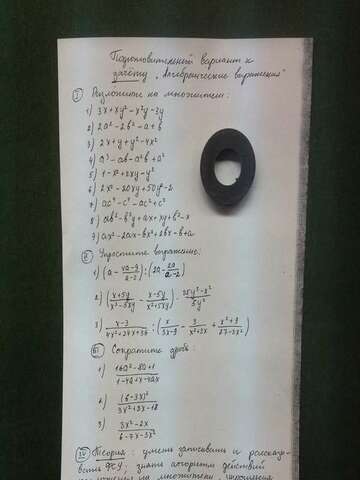 Подготовительный вариант к
зачёту „Алгебраические выражения"
I Разложите на множители:
1) 3x + xy² - x²y - 3y
2) 2a² - 2b² - a + b
3) 2x + y + y² - 4x²
4) a³ - ab - a²b + a²
5) 1 - x² + 2xy - y²
6) 2x² - 20xy + 50y² - 2
7) ac⁴ - c⁴ - ac² + c²
8) ab² - b²y + ax + xy + b² - x
9) ax² - 2ax - bx² + 2bx - b + a
II Упростите выражение:
1) (a - \frac{}{a-2}) : (2a - \frac{2a}{a-2})
2) (\frac{x+5y}{x²-5xy} - \frac{x-5y}{x²+5xy}) · \frac{25y²-x²}{5y²}
3) \frac{x-3}{4x²+24x+36} : (\frac{x}{3x-9} - \frac{3}{x²+3x} + \frac{x²+9}{27-3x²})
III Сократите дробь:
1) \frac{16a²-8a+1}{1-4a+x-4ax}
2) \frac{(6-3x)²}{3x²+3x-18}
3) \frac{3x²-2x}{6-7x-3x²}
IV Теория: уметь записывать и рассказы-
вать ФСУ, знать алгоритм действий
на множители,